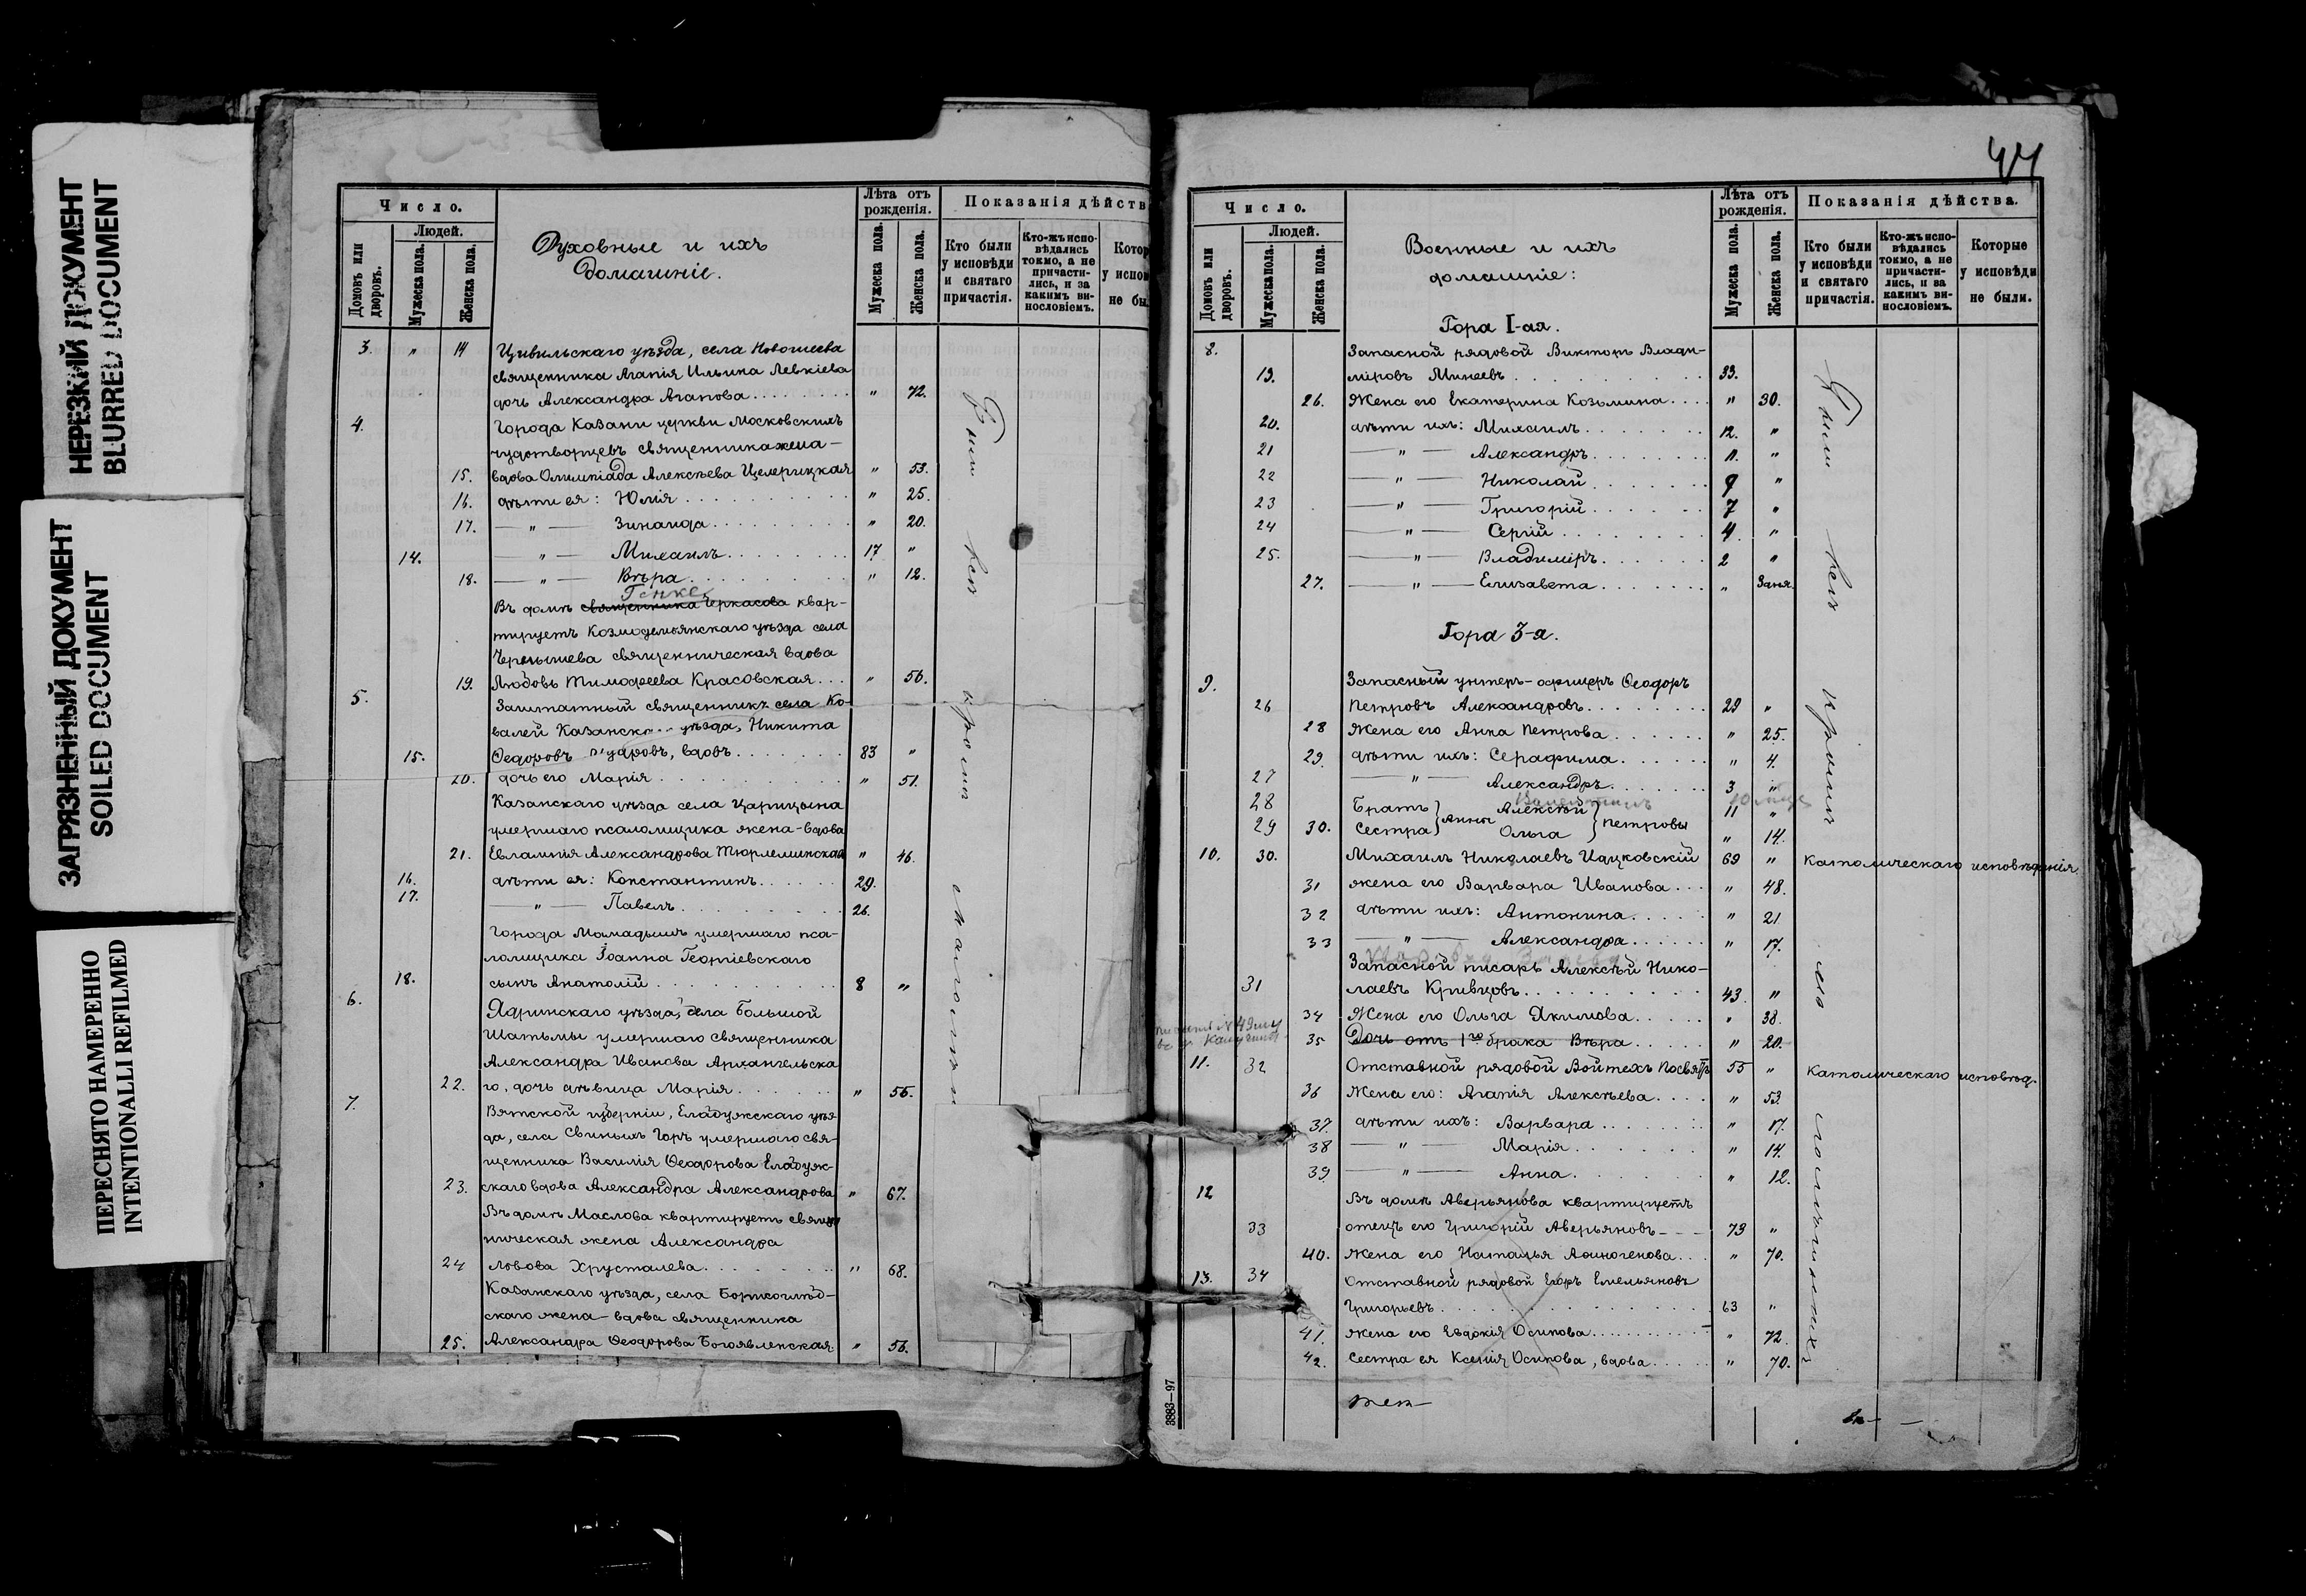 НЕРЕЗКИЙ ДОКУМЕНТ
BLURRED DOCUMENT
ЗАГРЯЗНЕННЫЙ ДОКУМЕНТ
SOILED DOCUMENT
ПЕРЕСНЯТО НАМЕРЕННО
INTENTIONALLI REFILMED
Число.
Людей.
Домовъ или дворовъ.
Мужеска пола.
Женска пола.
Духовные и ихъ
домашніе.
Лѣта отъ рожденія.
Мужеска пола.
Женска пола.
Показанія дѣйств
Кто были у исповѣди и святаго причастія.
Кто-жъ исповѣдались токмо, а не причастились, и за какимъ винословіемъ.
Котор
у испов
не бы
3. " 14 Цивильскаго уѣзда, села
священника Агапія Ильина Левкіева
дочь Александра Агапова " 72.
4. Города Казани церкви Московскихъ
чудотворцевъ священника жена-
15. вдова Олимпіада Алексѣева " 53.
16. дѣти ея: Юлія " 25.
17. — " — Зинаида " 20.
14. — " — Михаилъ 17 "
18. — " — Вѣра " 12.
Генке
Въ домѣ священника Черкасова квар-
тируетъ Козмодемьянскаго уѣзда села
Чермышева священническая вдова
19. Любовь Тимофеева Красовская " 56.
5. Заштатный священникъ села Ко-
валей Казанск уѣзда, Никита
15. Ѳедоровъ вдовъ 83 "
20. дочь его Марія " 51.
Казанскаго уѣзда села Царицына
умершаго псаломщика жена-вдова
21. Евлампія Александрова Тюрлеминская " 46.
16. дѣти ея: Константинъ 29.
17. — " — Павелъ 26.
Города Мамадышъ умершаго пса-
ломщика Іоанна Георгіевскаго
18. сынъ Анатолій 8 "
6. Ядринскаго уѣзда, села Большой
Шатьмы умершаго священника
Александра Иванова Архангельска
22. го, дочь дѣвица Марія " 56.
7. Вятской губерніи, Елабужскаго уѣз-
да, села Свиныхъ Горъ умершаго свя-
щенника Василія Ѳеодорова Елабуж-
23. скаго вдова Александра Александрова " 67.
Въ домѣ Маслова квартируетъ священ
ническая жена Александра
24 Львова Хрусталева " 68.
Казанскаго уѣзда, села
скаго жена-вдова священника
25. Александра Ѳеодорова Богоявленская " 56.
Были
всѣ
кромѣ
малолѣтн
44
Число.
Людей.
Домовъ или дворовъ.
Мужеска пола.
Женска пола.
Военные и ихъ
домашніе:
Лѣта отъ рожденія.
Мужеска пола.
Женска пола.
Показанія дѣйства.
Кто были у исповѣди и святаго причастія.
Кто-жъ исповѣдались токмо, а не причастились, и за какимъ винословіемъ.
Которые у исповѣди не были.
Гора I-ая.
8. Запасной рядовой Викторъ Влади-
19. міровъ Минеевъ 33.
26. Жена его Екатерина Козьмина " 30.
20. дѣти ихъ: Михаилъ 12. "
21 — " — Александръ 11. "
22 — " — Николай 9 "
23 — " — Григорій 7 "
24 — " — Сергій 4. "
25. — " — Владиміръ 2 "
27. — " — Елизавета "
Гора 3-я.
9. Запасный унтеръ-офицеръ Ѳеодоръ
26 Петровъ Александровъ 29 "
28 Жена его Анна Петрова " 25.
29. дѣти ихъ: Серафима " 4.
27 — " — Александръ 3 "
28 Братъ Анны Алексѣй Петровы 11 "
29 30. Сестра Ольга " 14.
10. 30. Михаилъ Николаевъ Иацковскій 69 " Католическаго исповѣданія
31 жена его Варвара Иванова " 48.
32 дѣти ихъ: Антонина " 21
33 — " — Александра " 17.
Запасной писарь Алексѣй Нико-
31 лаевъ Кривцовъ 43. "
34 Жена его Ольга Якимова " 38.
35 Дочь отъ 1го брака Вѣра " 20.
11. 32 Отставной рядовой Войтехъ 55 " Католическаго исповѣд.
36 Жена его: Агапія Алексѣева " 53.
37. дѣти ихъ: Варвара " 17.
38 — " — Марія " 14.
39 — " — Анна " 12.
12 Въ домѣ Аверьянова квартируетъ
33 отецъ его Григорій Аверьяновъ 73 "
40. Жена его Наталья Аѳиногенова " 70.
13. 34 Отставной рядовой Егоръ Емельяновъ
Григорьевъ 63 "
41. жена его Евдокія Осипова " 72.
42. Сестра ея Ксенія Осипова, вдова " 70.
Были
всѣ
кромѣ
малолѣтнихъ
3883—97